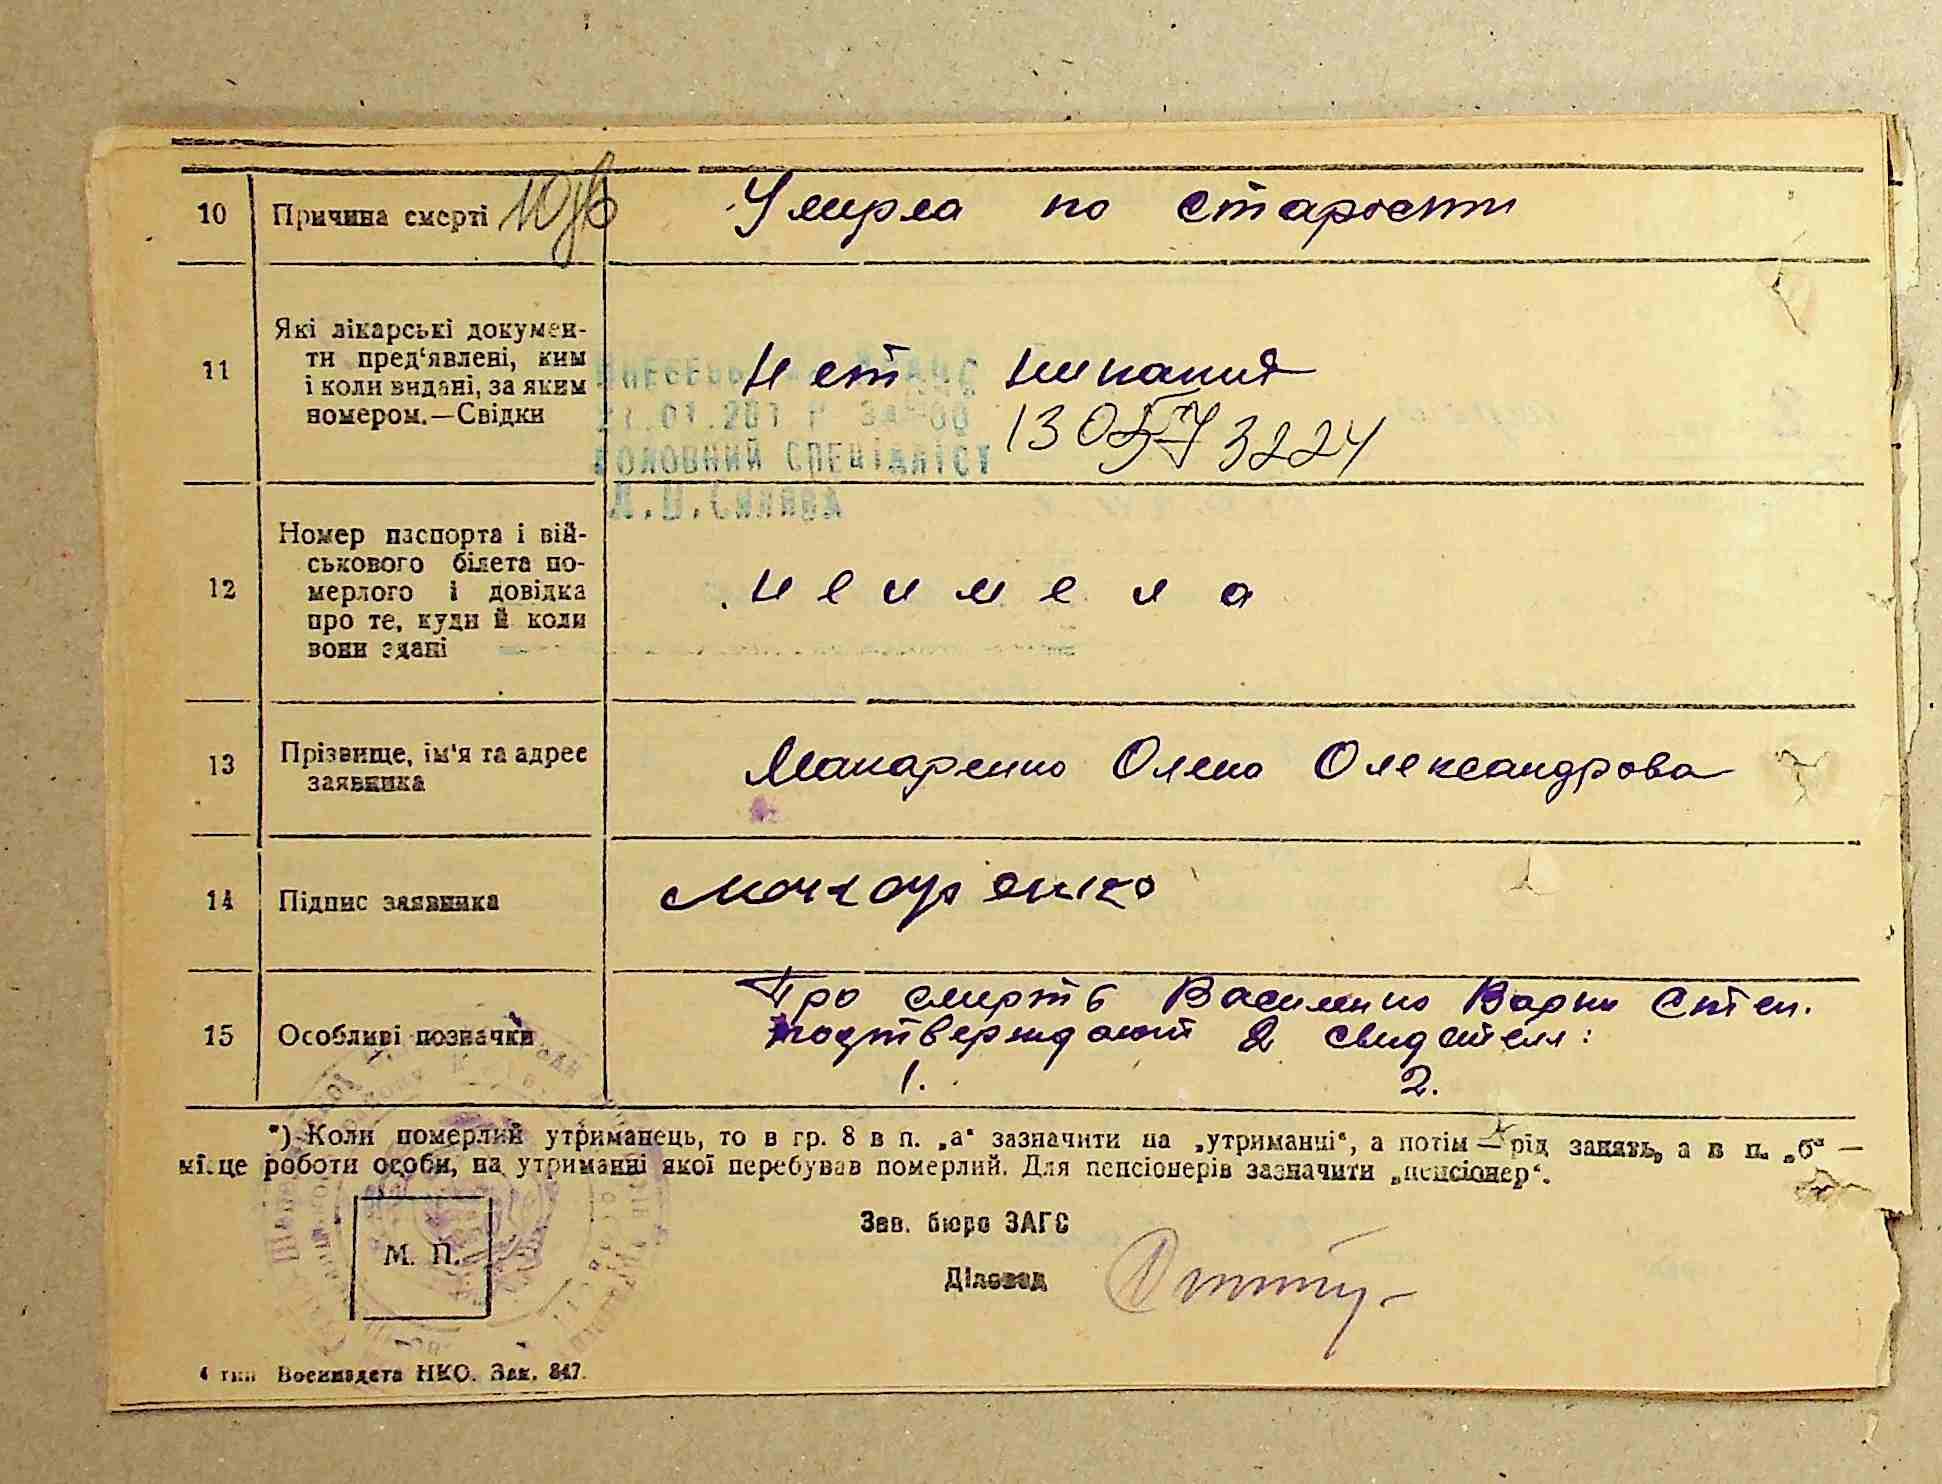 10 Причина смерті Умирла по старости
11 Які лікарські докумен-
ти пред'явлені, ким
і коли видані, за яким
номером.—Свідки
нет никакия
3224
ГОЛОВНИЙ СПЕЦІАЛІСТ
12 Номер паспорта і вій-
ськового білета по-
мерлого і довідка
про те, куди й коли
вони здані
не имела
13 Прізвище, ім'я та адрес
заявника
Макаренко Олена Олександрова
14 Підпис заявника Макаренко
15 Особливі позначки
Про смирть Василенко Варки Степ.
подтверждают 2 свидетеля:
1. 2.
*) Коли померлий утриманець, то в гр. 8 в п. „а“ зазначити на „утриманні“, а потім — рід занять, а в п. „б“ —
місце роботи особи, на утриманні якої перебував померлий. Для пенсіонерів зазначити „пенсіонер“.
М. П.
Зав. бюро ЗАГС
Діловод
4 тип Воениздата НКО. Зак. 847.